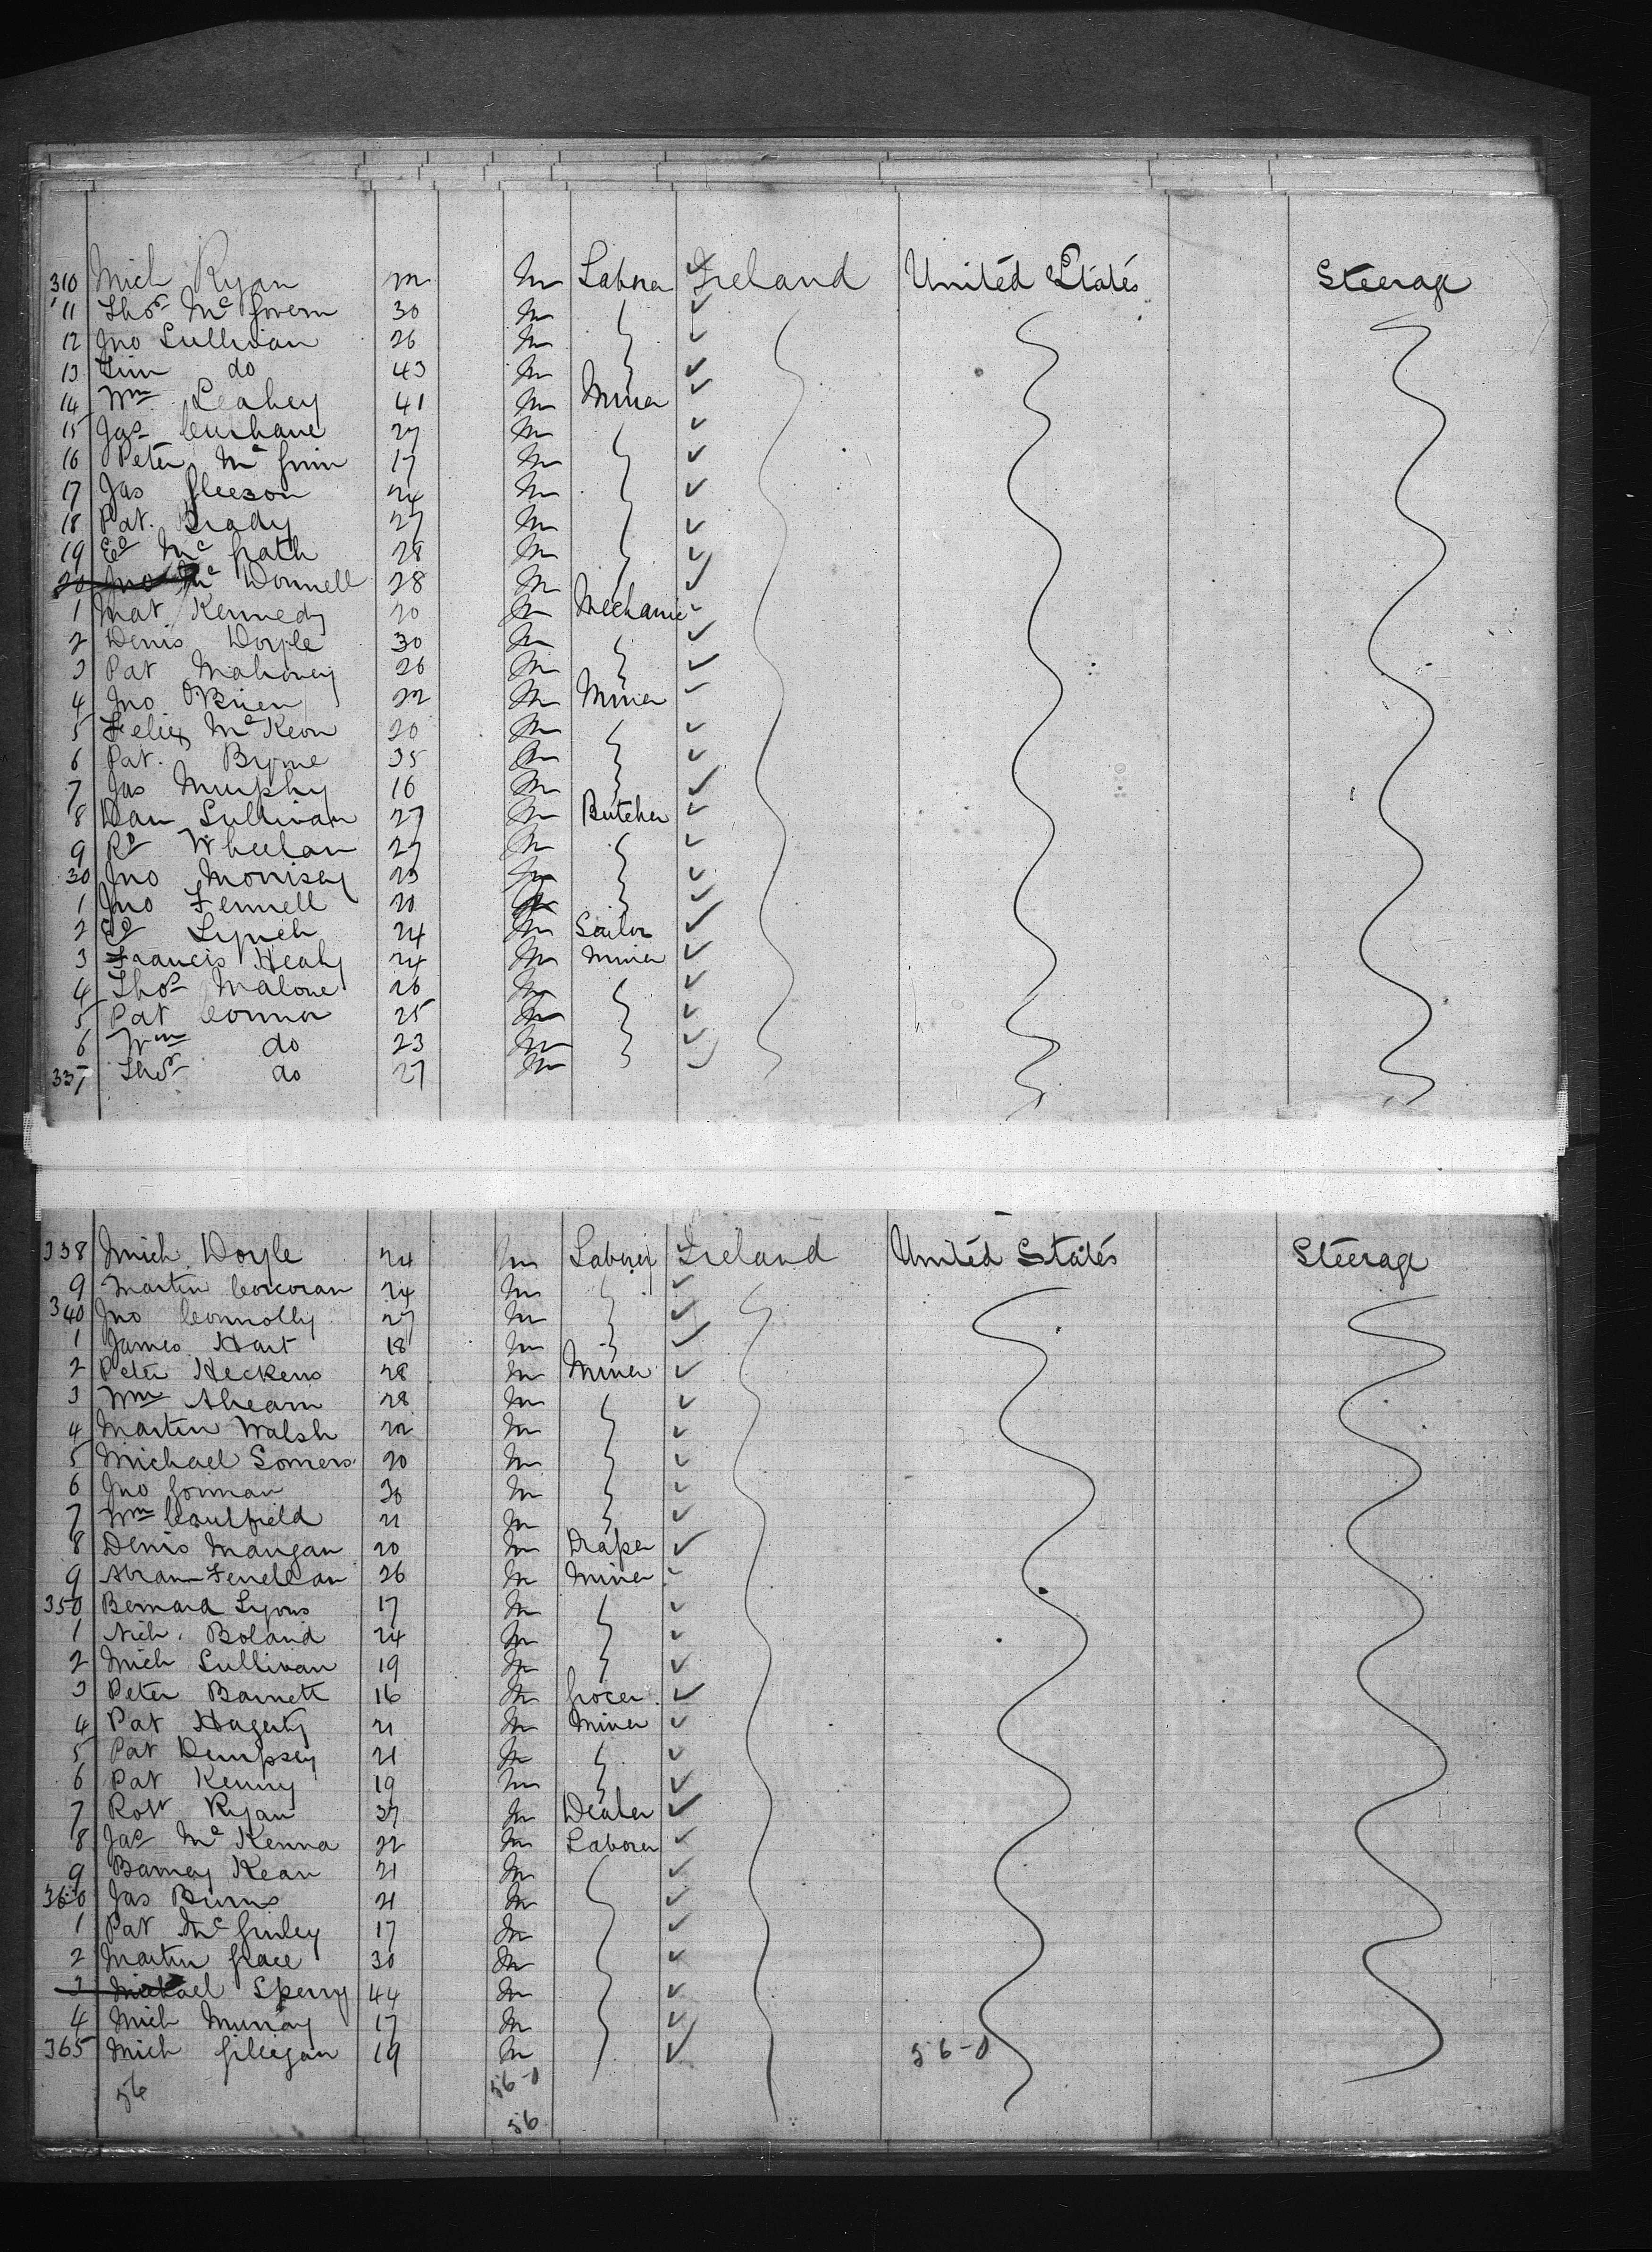 310 Mich Ryan 22 m Laborer Ireland United States Steerage
11 Thos McGovern 30 m
12 Jno Sullivan 26 m
13 Tim do 43 m
14 Wm Leahey 41 m Miner
15 Jas Cushane 27 m
16 Peter McGinn 17 m
17 Jas Gleeson 24 m
18 Pat. Brady 27 m
19 Ed McGrath 28 m
20 Jno McDonnell 28 m
1 Mat Kennedy 20 m Mechanic
2 Denis Doyle 30 m
3 Pat Mahoney 26 m
4 Jno O'Brien 22 m Miner
5 Felix McKeon 20 m
6 Pat. Byrne 35 m
7 Jas Murphy 16 m
8 Dan Sullivan 27 m Butcher
9 Rd Wheelan 27 m
30 Jno Morrisey 23 m
1 Jno Fennell 20 m
2 Ed Lynch 24 m Sailor
3 Francis Healy 24 m Miner
4 Thos Malone 26 m
5 Pat Connor 25 m
6 Wm do 23 m
337 Thos do 27 m
338 Mich Doyle 24 m Laborer Ireland United States Steerage
9 Martin Corcoran 24 m
340 Jno Connolly 27 m
1 James Hart 18 m
2 Peter Heckens 28 m Miner
3 Wm Ahearn 28 m
4 Martin Walsh 22 m
5 Michael Somers 20 m
6 Jno Gorman 30 m
7 Wm Caulfield 21 m
8 Denis Mangan 20 m Draper
9 Abram 26 m Miner
350 Bernard Lyons 17 m
1 Nich. Boland 24 m
2 Mich Sullivan 19 m
3 Peter Barnett 16 m Grocer
4 Pat Hagerty 21 m Miner
5 Pat Dempsey 21 m
6 Pat Kenny 19 m
7 Robt Ryan 37 m Dealer
8 Jas McKenna 22 m Laborer
9 Barney Kean 21 m
360 Jas Burns 21 m
1 Pat McGinley 17 m
2 Martin Grace 30 m
3 Michael Sperry 44 m
4 Mich Murray 17 m
365 Mich Gilligan 19 m 56-0
56 56-0
56